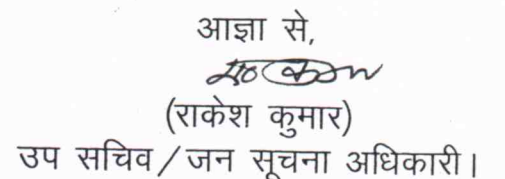 आज्ञा से,
(राकेश कुमार)
उप सचिव / जन सूचना अधिकारी।